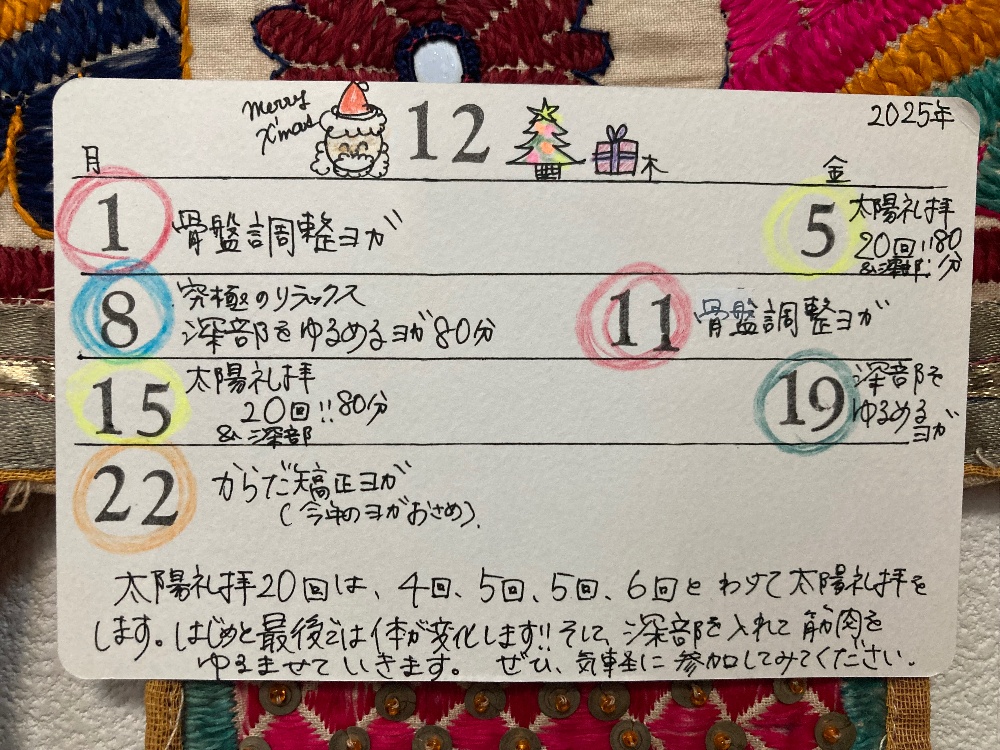 merry
X'mas
12
2025年
月
木
金
1 骨盤調整ヨガ
5 太陽礼拝
20回!!80分
&深部!
8 究極のリラックス
深部をゆるめるヨガ80分
11 骨盤調整ヨガ
15 太陽礼拝
20回!!80分
&深部
19 深部を
ゆるめる
ヨガ
22 からだ矯正ヨガ
(今年のヨガおさめ).
太陽礼拝20回は、4回、5回、5回、6回とわけて太陽礼拝を
します。はじめと最後では体が変化します!!そして、深部を入れて筋肉を
ゆるませていきます。ぜひ、気軽に参加してみてください.